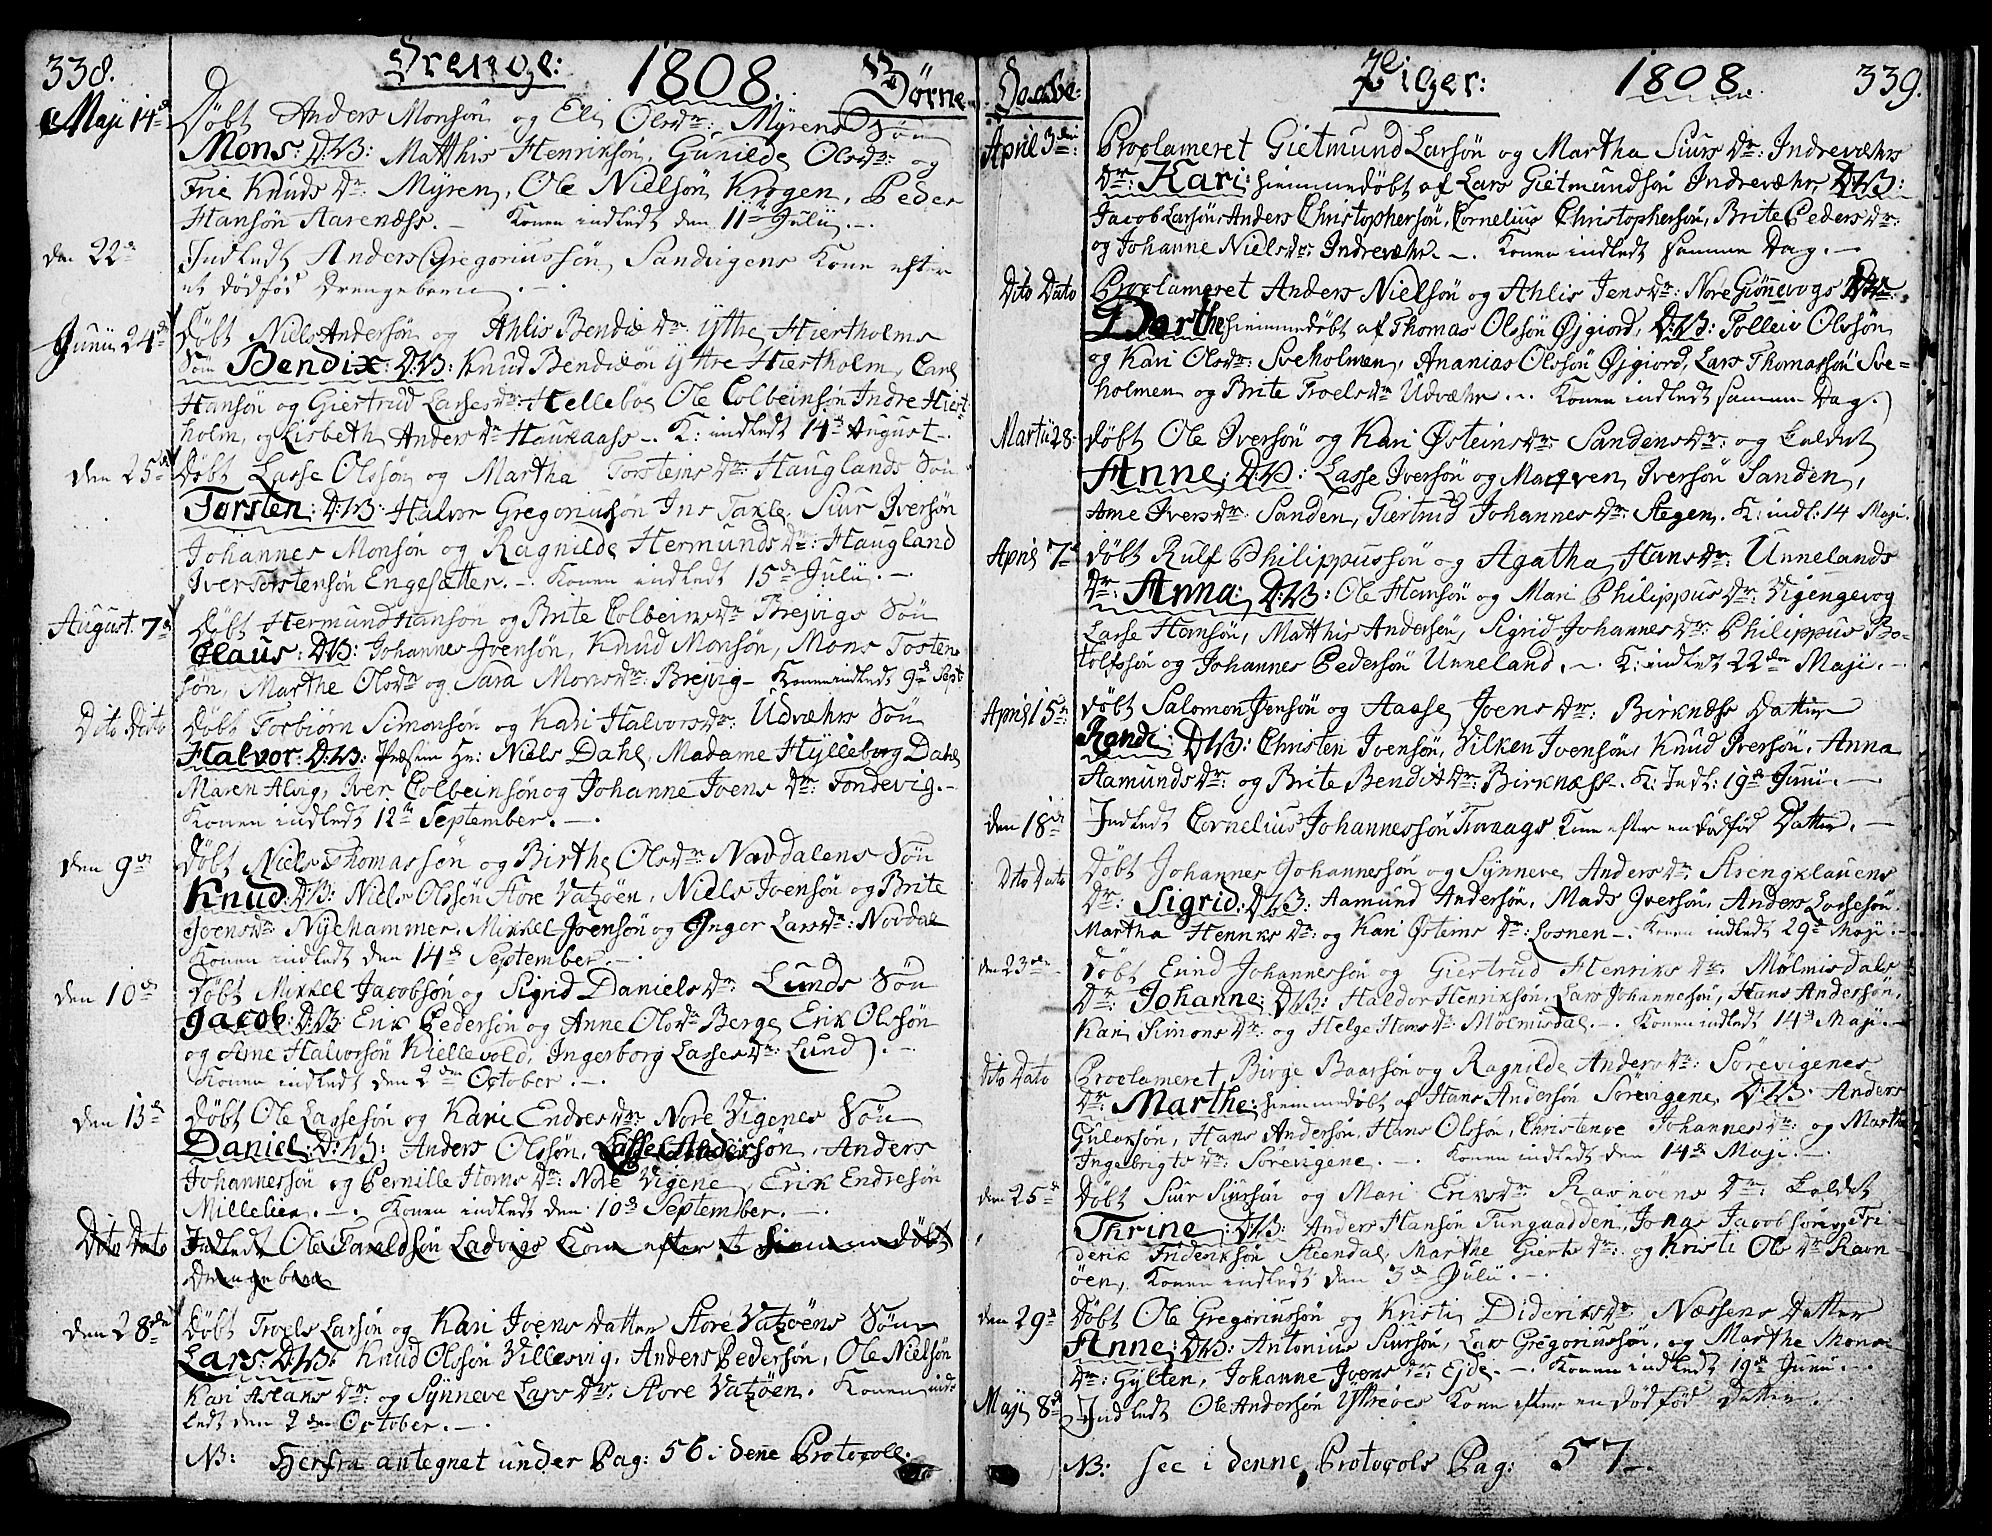 338.
Drenge:
1808.
Børne
Maji 14de
Døbt Anders Monsøn og Eli Olsdr: Myrens Søn
Mons: D:W3: Matthis Henriksøn, Gunilde Olsdr: og
Knuds Dr: Myren, Ole Nielsøn Krogen, Peder
Hansøn Aarenæss. - Konen indledt den 11te Julii.-
den 22de
Indledt Anders Gregoriussøn Sandvigens Kone efter
et dødfød Drengebarn.-
Junii 24de
Døbt Niels Andersøn og Ahlis Bendix Dr: Ytthe Hiertholms
Søn Bendix: D:W3: Knud Bendixøn Yttre Hiertholm, Carl
Hansøn og Giertrud Lasses dr: Hellebøe Ole Colbeinsøn Indre Hiert-
holm, og Lisbeth Anders Dr Haukaass-. K: indledt 14de August-.
den 25de
Døbt Lasse Olssøn og Martha Torsteins Dr: Hauglands Søn
Torsten: D:W3: Halvor Gregoriussøn Takle, Siur Iversøn
Johannes Monsøn og Ragnilde Hermunds Dr: Haugland
Iver Torstensøn Engesætter.-. Konen indledt 15de Julii.-
August. 7de
Døbt Hermund Hansøn og Brite Colbeins Dr Brejvigs Søn
Claus: D:W3: Johannes Joensøn, Knud Monsøn, Mons Tosten
søn, Marthe Olsdr og Sara Monsdr: Brejvig- Konen indledt 9de Sept
Dito Dito
Døbt Torbiørn Simonsøn og Kari Halvors Dr: Udvæhrs Søn
Halvor: D:W3: Hr: Niels Dahl, Madame Hylleborg Dahl
Maren Alvig, Iver Colbeinsøn og Johanne Joens Dr: Tondevig.-
Konen indledt 12te September.-.
den 9de
Døbt Niels Thomassøn og Birthe Olsdr Navdalens Søn
Knud: D:W3: Niels Olssøn Store Vatzøen, Niels Joensøn og Brite
Joensdr: Nyehammer. Mikkel Joensøn og Inger Larsdr: Novdal
Konen indledt den 14de September.-.
den 10de
Døbt Mikkel Jacobsøn og Sigrid Daniels Dr: Lunds Søn
Jacob: D:W3: Erik Pedersøn og Anne Olsdr Berge, Erik Olssøn
og Arne Halvorsøn Kiellevold, Ingerborg Lasses Dr: Lund).-
Konen indledt den 2den October.-.
den 13de
Døbt Ole Lassesøn og Kari Endres Dr: Nore Vigenes Søn
Daniel: D:W3: Anders Olssøn, Lasse Andersøn, Anders
Johannessøn og Pernille Hans Dr: Nore Vigene, Erik Endresøn
Millelien.-. Konen indledt den 10de September.-.
Dito Dato
Indledt Ole Ladvigs Kone efter et hiemmedøbt
Drengebarn
den 28de
Døbt Troels Larsøn og Kari Joens datter Store Vatzøens Søn
Lars: D:W3: Knud Olssøn Villesvig, Anders Pedersøn, Ole Nielsøn
Kari Aslaks Dr: og Synneve Lars Dr: Store Vatzøen. Konen ind-
ledt den 2den October.-.
NB: Herfra antegnet under Pag: 56 i denne Protocoll.
Daabe:
Piger:
1808
339.
April 3die:
Proclameret Gietmund Larsøn og Martha Siurs Dr: Indrevæhrs
Dr: Kari: hiemmedøbt af Lars Gietmundsøn Indrevæhr, D:W3:
Jacob Larsøn, Anders Christophersøn, Cornelius Christophersøn, Brite Peders dr:
og Johanne Niels dr: Indrevæhr.-. Konen indledt samme Dag.-
Dito Dato
Proclameret Anders Nielsøn og Ahlis Jens Dr: Nore Giønevogs Dr:
Dorthe hiemmedøbt af Thomas Olssøn Øjgiord, D:W3: Polleiv Olssøn
og Kari Olsdr: Sveholmen, Ananias Olssøn Øjgiord, Lars Thomassøn Sve=
holmen og Brite Troelsdr Udvæhr.-. Konen indledt samme Dag.
Martii 28.
Døbt Ole Iversøn og Kari Østeins dr: Sandens dr: og kaldet
Anne: D:W3: Lasse Iversøn og Iversøn Sanden,
Anne Ivers dr: Sanden, Giertrud Johannes Dr: Stegen. K: indl: 14 Maji.
April 7de
Døbt Rulf Philippussøn og Agatha Hans Dr: Unnelands
Dr: Anna: D:W3: Ole Hansøn og Mari Philippus Dr: Vigengevog
Lasse Hansøn, Matthis Andersøn, Sigrid Johannes Dr: Philippus Ro-
tolfssøn og Johannes Pedersøn Unneland.-. K: indledt 22den Maji.-
April 15de
Døbt Salomon Jensøn og Aasse Joens Dr: Birknæss Datter
Randi: D:W3: Christen Joensøn, Vilken Joensøn, Knud Iversøn, Anna
Aamunds Dr: og Brite Bendix Dr: Birknæss-. K: Indl: 19de Junii.-
den 18de
Indledt Cornelius Johannessøn Kone efter en dødfød Datter.-
Dito Dato
Døbt Johannes Johannessøn og Synneve Anders Dr: Strengklauens
Dr: Sigrid: D:W3: Aamund Andersøn, Mads Iversøn, Anders Lassesøn
Martha Henriks Dr: og Kari Østeins Dr: Losnen-. Konen indledt 29de Maji.-
den 23de
Døbt Eiind Johannessøn og Giertrud Henriks Dr: Mølmisdals
Dr: Johanne: D:W3: Haldor Henriksøn, Lars Johannessøn, Hans Andersøn,
Kari Simons Dr: og Helge Hans Dr: Mølmisdal.-. Konen indledt 14de Maji.-
Dito Dato
Proclameret Birge Baarsøn og Ragnilde Anders Dr: Sørevigenes
Dr: Marthe: hiemmedøbt af Hans Andersøn Sørevigene, D:W3: Anders
Gulaksøn, Hans Andersøn, Hans Olssøn, Christence Johannes Dr: og Marthe
Ingebrigts dr: Sørevigene.-. Konen indledt den 14de Maji.-.
den 25de
Døbt Siur Siursøn og Mari Eriks Dr: Ravnøens Dr: kaldet
Thrine: D:W3: Anders Hansøn Tungaadden, Jonas Jacobsøn, Fri-
derik Friderksøn Steendal, Marthe Gierts dr: og Kristi Ols Dr Ravn-
øen, Konen indledt den 3de Julii.-.
den 29de
Døbt Ole Gregoriussøn og Kristi Dideriksdr Næssens Datter
Anne: D:W3: Antonius Siursøn, Lars Gregoriussøn, og Marthe Mons
Dr: Gylten, Johanne Joens Dr: Ejde.-. Konen indledt 19de Junii.-.
Maji 8de
Indledt Ole Andersøn Yttrøes Kone efter en dødfød Datter.-.
NB. see i denne Protocols Pag: 57-.